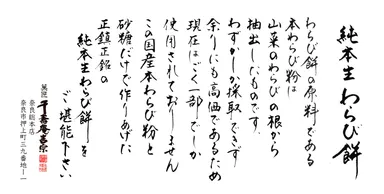 純本生わらび餅
わらび餅の原料である
本わらび粉は
山菜のわらびの根から
抽出したものです。
わずかしか採取できず
余りにも高価であるため
現在はごく一部でしか
使用されておりません
この国産本わらび粉と
砂糖だけで作りあげた
正真正銘の
純本生わらび餅を
ご堪能下さい
萬匠 千壽庵吉宗
奈良総本店
奈良市押上町三九番地ー一